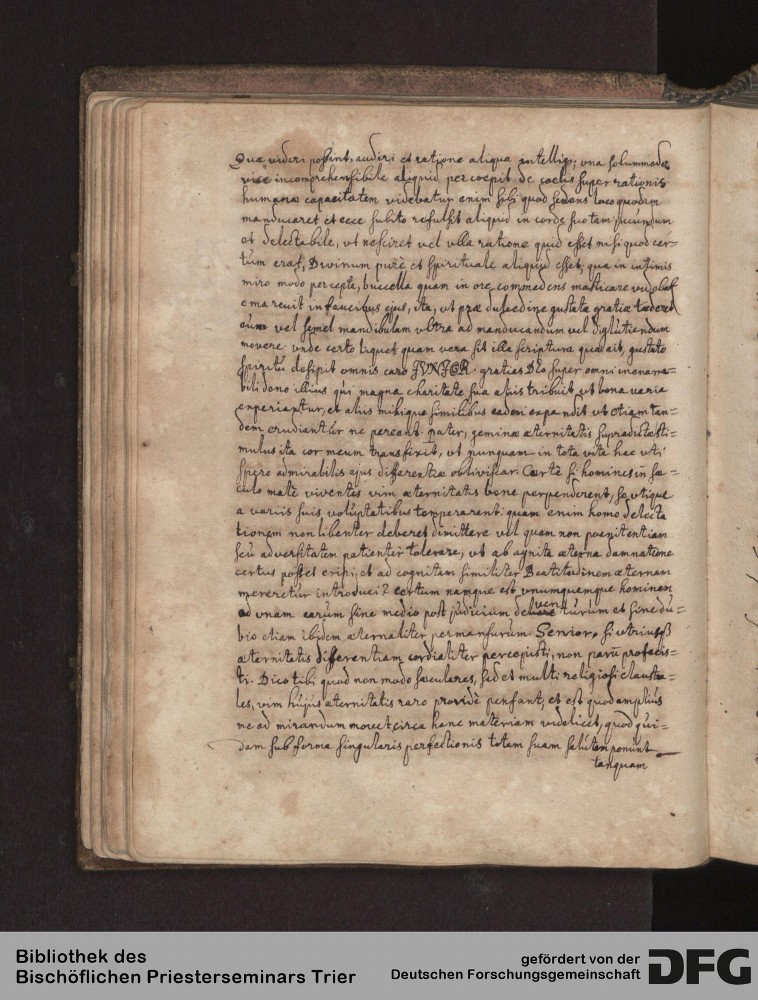 Quæ videri possint, audiri et ratione aliqua intelligi; una solummodo
vice incomprehensibile aliquid percoepit de coelis super rationis
humanæ capacitatem videbatur enim sibi quod sedens loco quodam
manducaret et ecce subito refulsit aliquid in corde suo tam jucundum
et delectabile, ut nesciret vel ulla ratione quid esset nisi quod cer=
tum erat, Divinum purè et spirituale aliquid esset; qua in intimis
miro modo percepta, buccella quam in ore commedens masticare videbat
emarcuit in faucibus ejus, ita, ut præ dulcedine gustatæ gratiæ tæderet
eum vel semel mandibulam ultra ad manducandum vel diglutiendum
movere: unde certo liquet quam vera sit illa scriptura quæ ait, gustato
spiritu desipit omnis caro JVNIOR. gratias Deo super omni inenarra=
bili dono illius qui magna charitate sua aliis tribuit, ut bona varia
experiantur, et aliis mihique similibus eadem expandit ut etiam tan=
dem erudiantur ne pereant. pater, geminæ æternitatis supradictæ sti=
mulus ita cor meum transfixit, ut nunquam in tota vita hac uti
spero admirabilis ejus differentiæ obliviscar. Certè si homines in sæ=
culo malè viventes vim æternitatis bene perpenderent, se utique
a variis suis voluptatibus temperarent: quam enim homo delecta
tionem non libenter deberet dimittere vel quam non poenitentiam
seu adversitatem patienter tolerare, ut ab agnita æterna damnatione
certus posset eripi; et ad cognitam similiter Beatitudinem æternam
mereretur introduci? certum namque est unumquemque hominem
ad unam earum sine medio post judicium deventurum et sine du=
bio etiam ibidem æternaliter permansurum. Senior. si utriusq3
æternitatis differentiam cordialiter percepisti, non parũ profecis=
ti. Dico tibi quod non modo sæculares, sed et multi religiosi claustra=
les, vim hujus æternitatis raro providè pensant, et est quod amplius
me ad mirandum movet circa hanc materiam videlicet, quod qui=
dam sub forma singularis perfectionis totam suam salutem ponunt
tanquam
Bibliothek des
Bischöflichen Priesterseminars Trier
gefördert von der
Deutschen Forschungsgemeinschaft
DFG